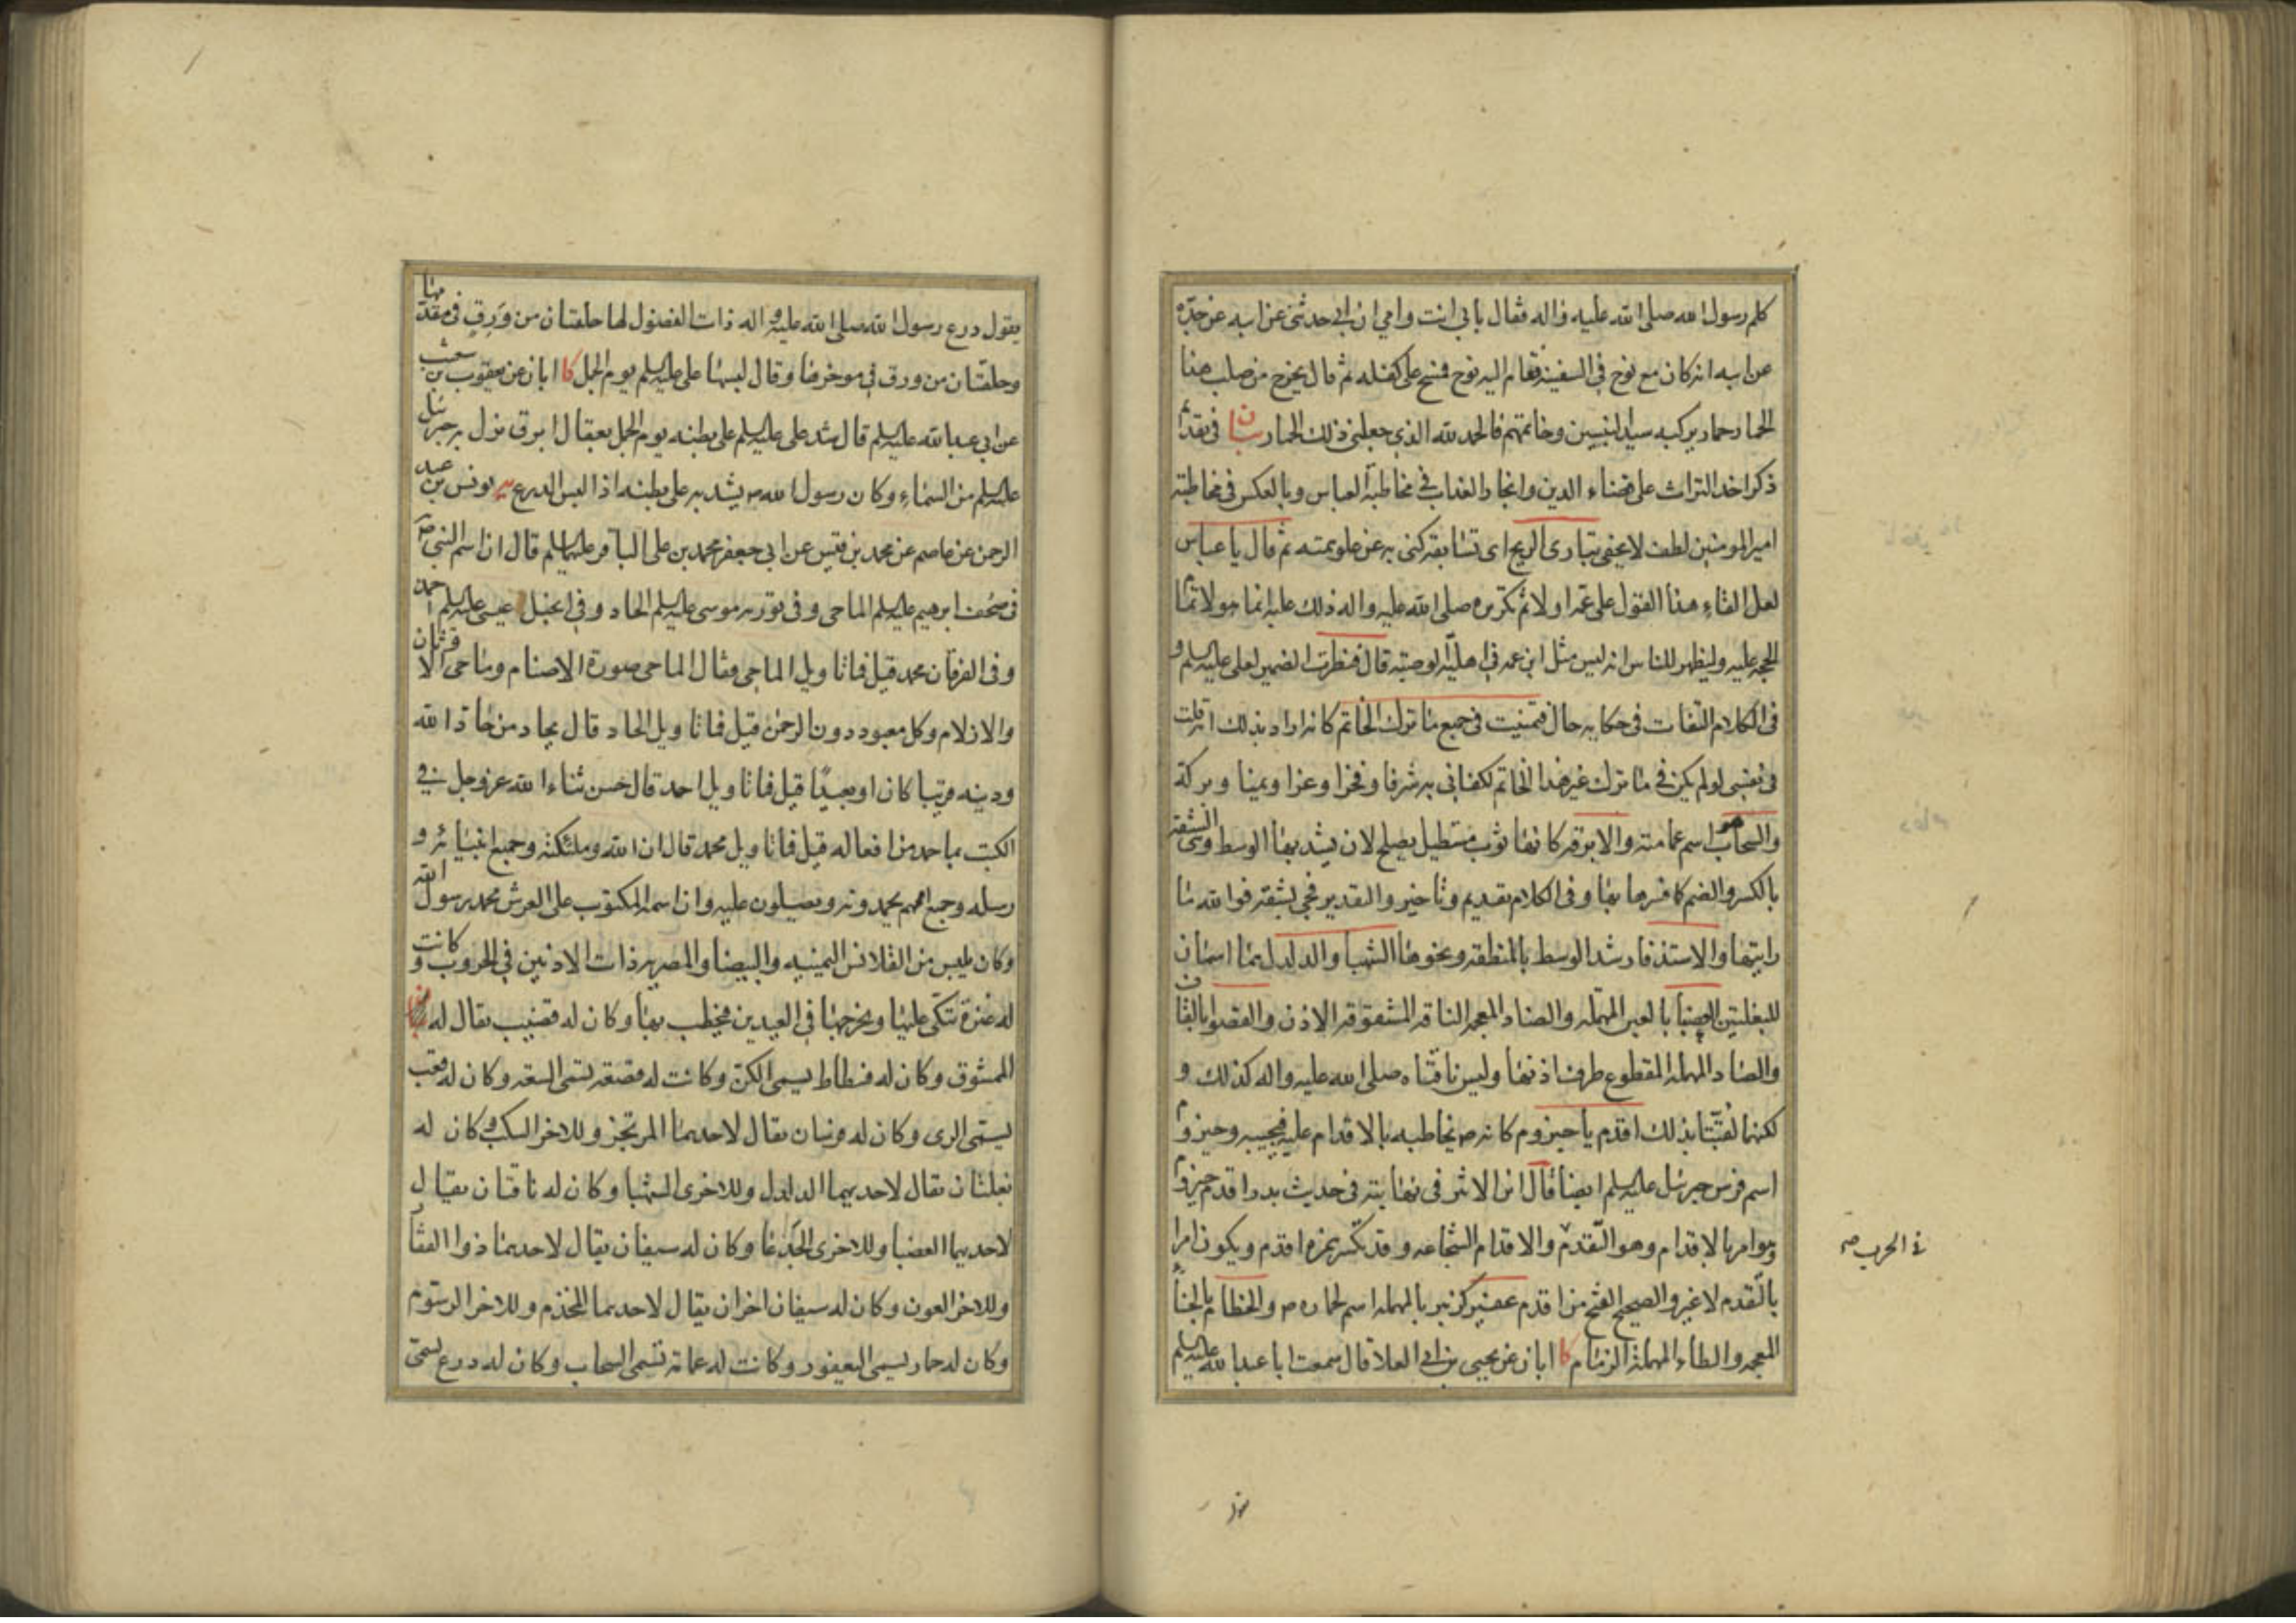 كلم رسول الله صلى الله عليه واله فقال بابي انت وامي ان ابي حدثني عن ابيه عن جده
عن ابيه انه كان مع نوح في السفينة فقام اليه نوح فمسح على كفله ثم قال يخرج من صلب هذا
الحمار حمار يركبه سيد النبيين وخاتمهم فالحمد لله الذي جعلني ذلك الحمار بيان في تقديم
ذكر اخذ التراث على قضاء الدين وانجاز العداب في مخاطبة العباس وبالعكس في مخاطبته
امير المومنين لطف لا يخفى تبارى الريح اى تسابقه كنى به عن علو همته ثم قال يا عباس
لعل القاء هذا القول على عمه اولا ثم تكريره صلى الله عليه واله ذلك عليه انما هو لاتمام
الحجه عليه وليظهر للناس انه ليس مثل ابن عمه في اهلية الوصيته قال فنظرت الضمير لعلى عليه السلم و
فى الكلام التفات فى حكايه حال فتمنيت فى جميع ما ترك الخاتم كانه اراد بذلك انى قلت
فى نفسى لو لم يكن في ما ترك غير هذا الخاتم لكفانى به شرفا وفخرا وعزا ويمنا وبركة
والسحاب هو اسم عمامته والابرقه كانها ثوب مستطيل يصلح لان يشد بها الوسط وهى الشقه
بالكسر والضم كما فسرها بها وفى الكلام تقديم وتاخير والتقدير فجى بشقة فوالله ما
رايتها والاستذفار شد الوسط بالمنطقه ونحوها الشهبا والدلدل هما اسمان
للبغلتين العضبا بالعين المهمله والضاد المعجمه الناقه المشقوقه الاذن والقصوا بالقاف
والصاد المهمله المقطوع طرف اذنها وليس ناقتاه صلى الله عليه واله كذلك و
لكنهما لقبتا بذلك اقدم يا حيزوم كانه ص يخاطبه بالاقدام عليه فيجيبه وحيزوم
اسم فرس جبرئيل عليه السلم ايضا قال ابن الاثير فى نهايته فى حديث بدر اقدم حيزوم
وهو امر بالاقدام وهو التقدم والاقدام الشجاعه وقد تكسر همزه اقدم ويكون امرا
في الحرب ص
بالتقدم لا غير والصحيح الفتح من اقدم عفير كزبير بالمهمله اسم لحماره ص والخطام بالخاء
المعجمه والطاء المهملة الزمام كا ابان عن يحيى بن ابى العلا قال سمعت ابا عبد الله عليه السلم
يقول درع رسول الله صلى الله عليه واله ذات الفضول لها حلقتان من ورق فى مقدمها
وحلقتان من ورق فى موخرها وقال لبسها على عليه السلم يوم الجمل كا ابان عن يعقوب بن شعيب
عن ابي عبد الله عليه السلم قال شد على عليه السلم على بطنه يوم الجمل بعقال ابرق نزل به جبرئيل
عليه السلم من السماء وكان رسول الله ص يشد به على بطنه اذا لبس الدرع يه يونس بن عبد
الرحمن عن عاصم عن محمد بن قيس عن ابي جعفر محمد بن على الباقر عليهما السلم قال ان اسم النبى ص
فى صحف ابرهيم عليه السلم الماحى وفى تورية موسى عليه السلم الحاد وفى انجيل عيسى عليه السلم احمد
وفى الفرقان محمد قيل فما تاويل الماحى فقال الماحى صورة الاصنام وماحى الاوثان
والازلام وكل معبود دون الرحمن قيل فما تاويل الحاد قال يحاد من حاد الله
ودينه قريبا كان او بعيدا قيل فما تاويل احمد قال حسن ثناء الله عز وجل فى
الكتب بما حمد من افعاله قيل فما تاويل محمد قال ان الله وملئكته وجميع انبيائه و
رسله وجميع اممهم يحمدونه ويصلون عليه وان اسمه المكتوب على العرش محمد رسول الله
وكان يلبس من القلانس اليمنيه والبيضا والمضربه ذات الاذنين فى الحروب وكانت
له عنزة يتكى عليها ويخرجها فى العيدين فيخطب بها وكان له قضيب يقال له
الممشوق وكان له فسطاط يسمى الكن وكانت له قصعه تسمى السعه وكان له قعب
يسمى الرى وكان له فرسان يقال لاحدهما المرتجز وللاخر السكب وكان له
بغلتان يقال لاحديهما الدلدل وللاخرى الشهبا وكان له ناقتان يقال
لاحديهما العضبا وللاخرى الجدعا وكان له سيفان يقال لاحدهما ذوا الفقار
وللاخر العون وكان له سيفان اخران يقال لاحدهما المخذم وللاخر الرسوم
وكان له حمار يسمى اليعفور وكانت له عمامة تسمى السحاب وكان له درع يسمى